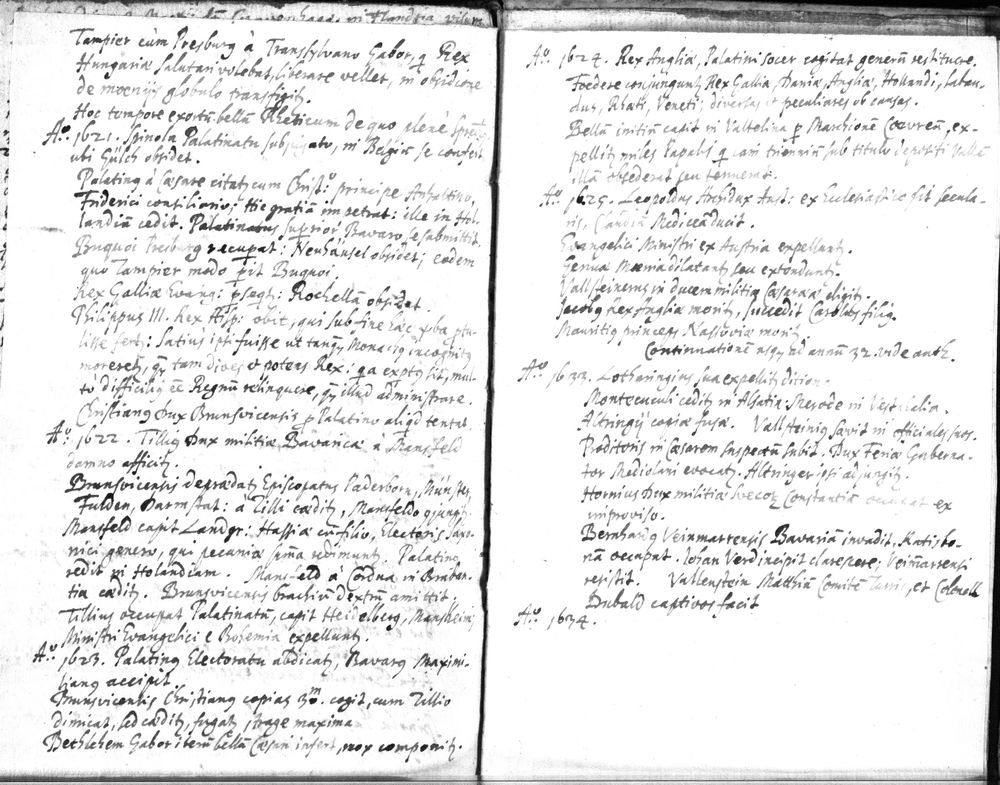 Tampier cùm Presburg à Transsylvano Gabor, q Rex
Hungariæ salutari volebat, liberare vellet, in obsidione
de moenijs globulo transfigitʒ.
Hoc tempore exortũ bellũ Rheticum de quo plenè
Aº. 1621. Spinola Palatinatu subjugato, in Belgiũ se confert
uti Gülch obsidet.
Palatinq à Cæsare citatq cum Christ: principe Anhaltino,
Friderici consiliario; Hic gratiã impetrat: ille in Hol-
landiã cedit. Palatinatus superior Bavaro se submittit.
Buquoi Presburg recuperat: Neuhäusel obsidet; eodem
quo Tampier modo perit Buquoi.
Rex Galliæ Evang: persequit: Rochellã obsidet.
Philippus III. Rex Hisp: obit, qui sub fine hæc verba ptu-
lisse fert: Satius ipsi fuisse ut tanq Monachq incognitq
moreret, q tam dives et potens Rex: qa exptq sit, mul-
tò difficiliq eẽ Regnũ relinquere, q illud administrare.
Christianq Dux Brunsvicensis p Palatino aliqd tentat.
Aº. 1622. Tilliq Dux militiæ Bavaricæ à Mansfeld
damno afficitʒ.
Brunsvicensis deprædatʒ Episcopatus Paderborn, Münster,
Fulden, Darmstat: à Tilli cæditʒ, Mansfeldo
Mansfeld capit Landgr: Hassiæ cũ filio, Electoris Saxo-
nici genero, qui pecuniæ sũma redimunt. Palatinq
redit in Holandiam. Mansfeld à Cordua in Braban-
tia cæditʒ. Brunsvicensis brachiũ dextrũ amittit.
Tillius occupat Palatinatũ, capit Heidelberg, Manheim;
Ministri Evangelici e Bohemia expelluntʒ.
Aº. 1623. Palatinq Electoratu abdicatʒ, Bavarq Maximi-
lianq accipit.
Brunsvicensis Christianq copias 30.m cogit, cum Tillio
dimicat, sed cæditʒ, fugatʒ strage maxima
Bethlehem Gabor iterũ bellũ Cæsari infert, mox componitʒ.
Aº. 1624. Rex Angliæ, Palatini socer cogitat generũ restituere.
Foedere conjunguntʒ Rex Galliæ, Daniæ, Angliæ, Hollandi, Sabau-
dus, Rhæti, Veneti; diversas et peculiares ob causas.
Bellũ initiũ capit in Valtolina p Marchionẽ Coevreũ, ex-
pellitʒ miles Papalis q eam trienniũ sub titulo depositi Vallẽ
illã obsederat seu tenuerat.
Aº. 1625. Leopoldus Archidux Aust: ex Ecclesiastico fit secula-
ris, Claudiã Mediceã ducit.
Evangelici Ministri ex Austria expelluntʒ.
Genuæ Moenia dilatantʒ seu extenduntʒ.
Vallsteinerus in ducem militiæ Cæsareæ eligitʒ.
Jacobq Rex Angliæ moritʒ, succedit Carolus filiq.
Mauritiq princeps Nassoviæ moritʒ
Continuationẽ usq ad annũ 32. vide
Aº. 1633. Lotharingius sua expellitʒ ditione.
Montecuculi cedit in Alsatia: Merode in Vestphalia.
Altringij copiæ fusæ. Vallsteiniq sævit in officiales suos.
Proditoris in Cæsarem suspectũ subit. Dux Feriæ Guberna-
tor Mediolani evocatʒ. Altringer ipsi adjungitʒ.
Hornius Dux militiæ Constantiã occupat ex
improviso.
Bernhardq Veinmarensis Bavariã invadit. Ratisbo-
nã occupat. Johan Verd incipit clarescere; Veimarensi
resistit. Vallenstein Matthiã Comitẽ Turris, et Colonell
Dubald captivos facit
Aº. 1634.